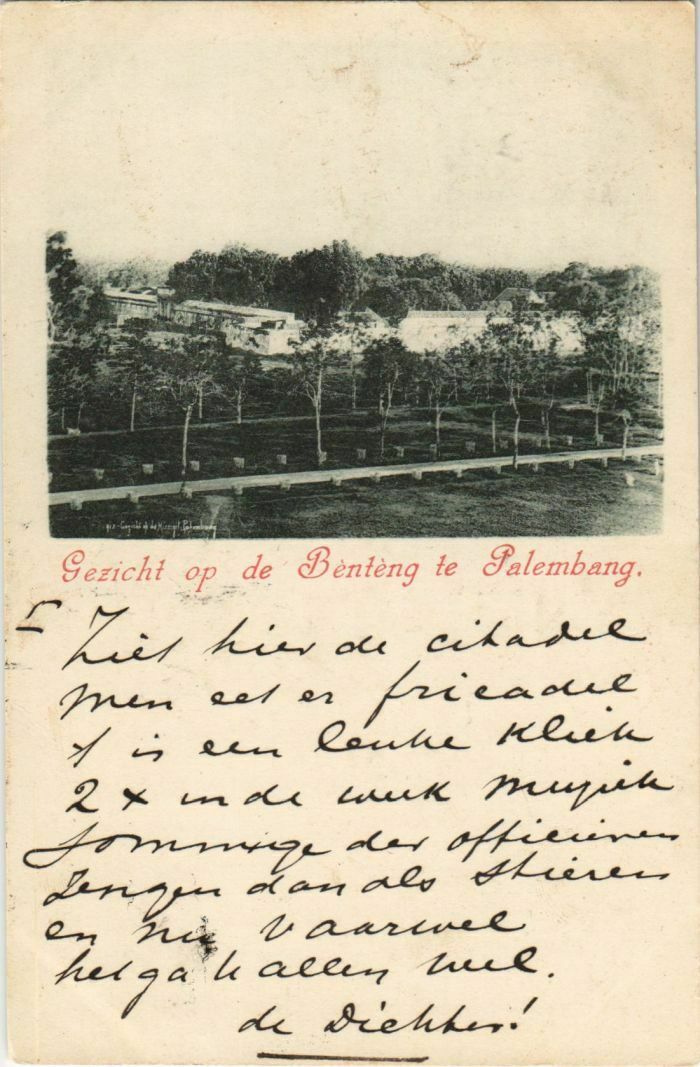 Gezicht op de Bèntèng te Palembang.
Ziet hier de citadel
men eet er fricadel
't is een leuke kliek
2 x in de week muziek
Sommige der officieren
Zengen dan als stieren
en nu vaarwel
het ga U allen wel.
de Dichter!